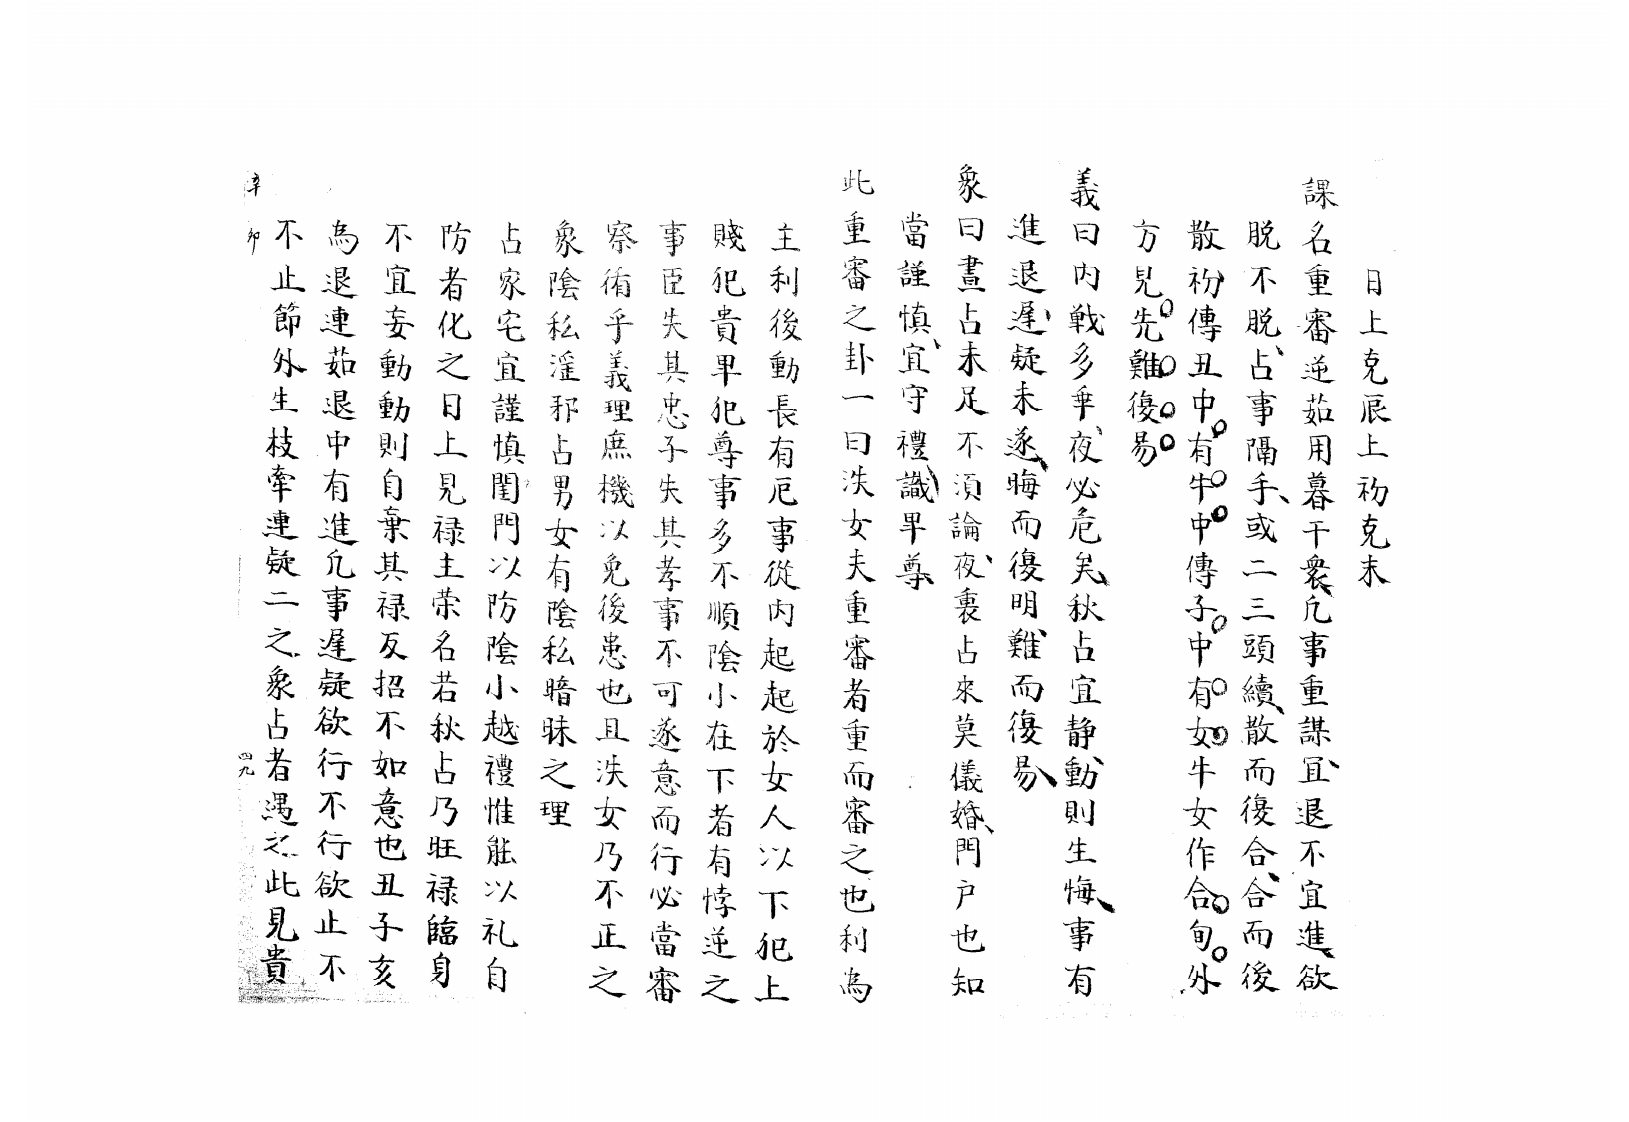 日上克辰上初克末
課名重審逆茹用暮干衆凢事重謀冝退不宜進欲
脱不脱占事隔手或二三頭續散而後合合而後
散初傳丑中有牛中傳子中有女牛女作合旬外
方見先難復易
義曰内戰多乖夜必危矣秋占宜静動則生悔事有
進退遲疑未遂晦而復明難而復易
象曰晝占未足不須論夜裏占來莫儀婚門户也知
當謹慎宜守禮識卑尊
此重審之卦一曰泆女夫重審者重而審之也利為
主利後動長有厄事從内起起於女人以下犯上
賤犯貴卑犯尊事多不順陰小在下者有悖逆之
事臣失其忠子失其孝事不可遂意而行必當審
察侑乎義理庶機以免後患也且泆女乃不正之
象陰私滛邪占男女有陰私暗昧之理
占家宅宜謹慎閨門以防陰小越禮惟能以礼自
防者化之日上見禄主荣名若秋占乃旺禄臨身
不宜妄動動則自棄其禄反招不如意也丑子亥
為退連茹退中有進凢事遲疑欲行不行欲止不
不止節外生枝牽連疑二之象占者遇之此見貴
辛卯
四九